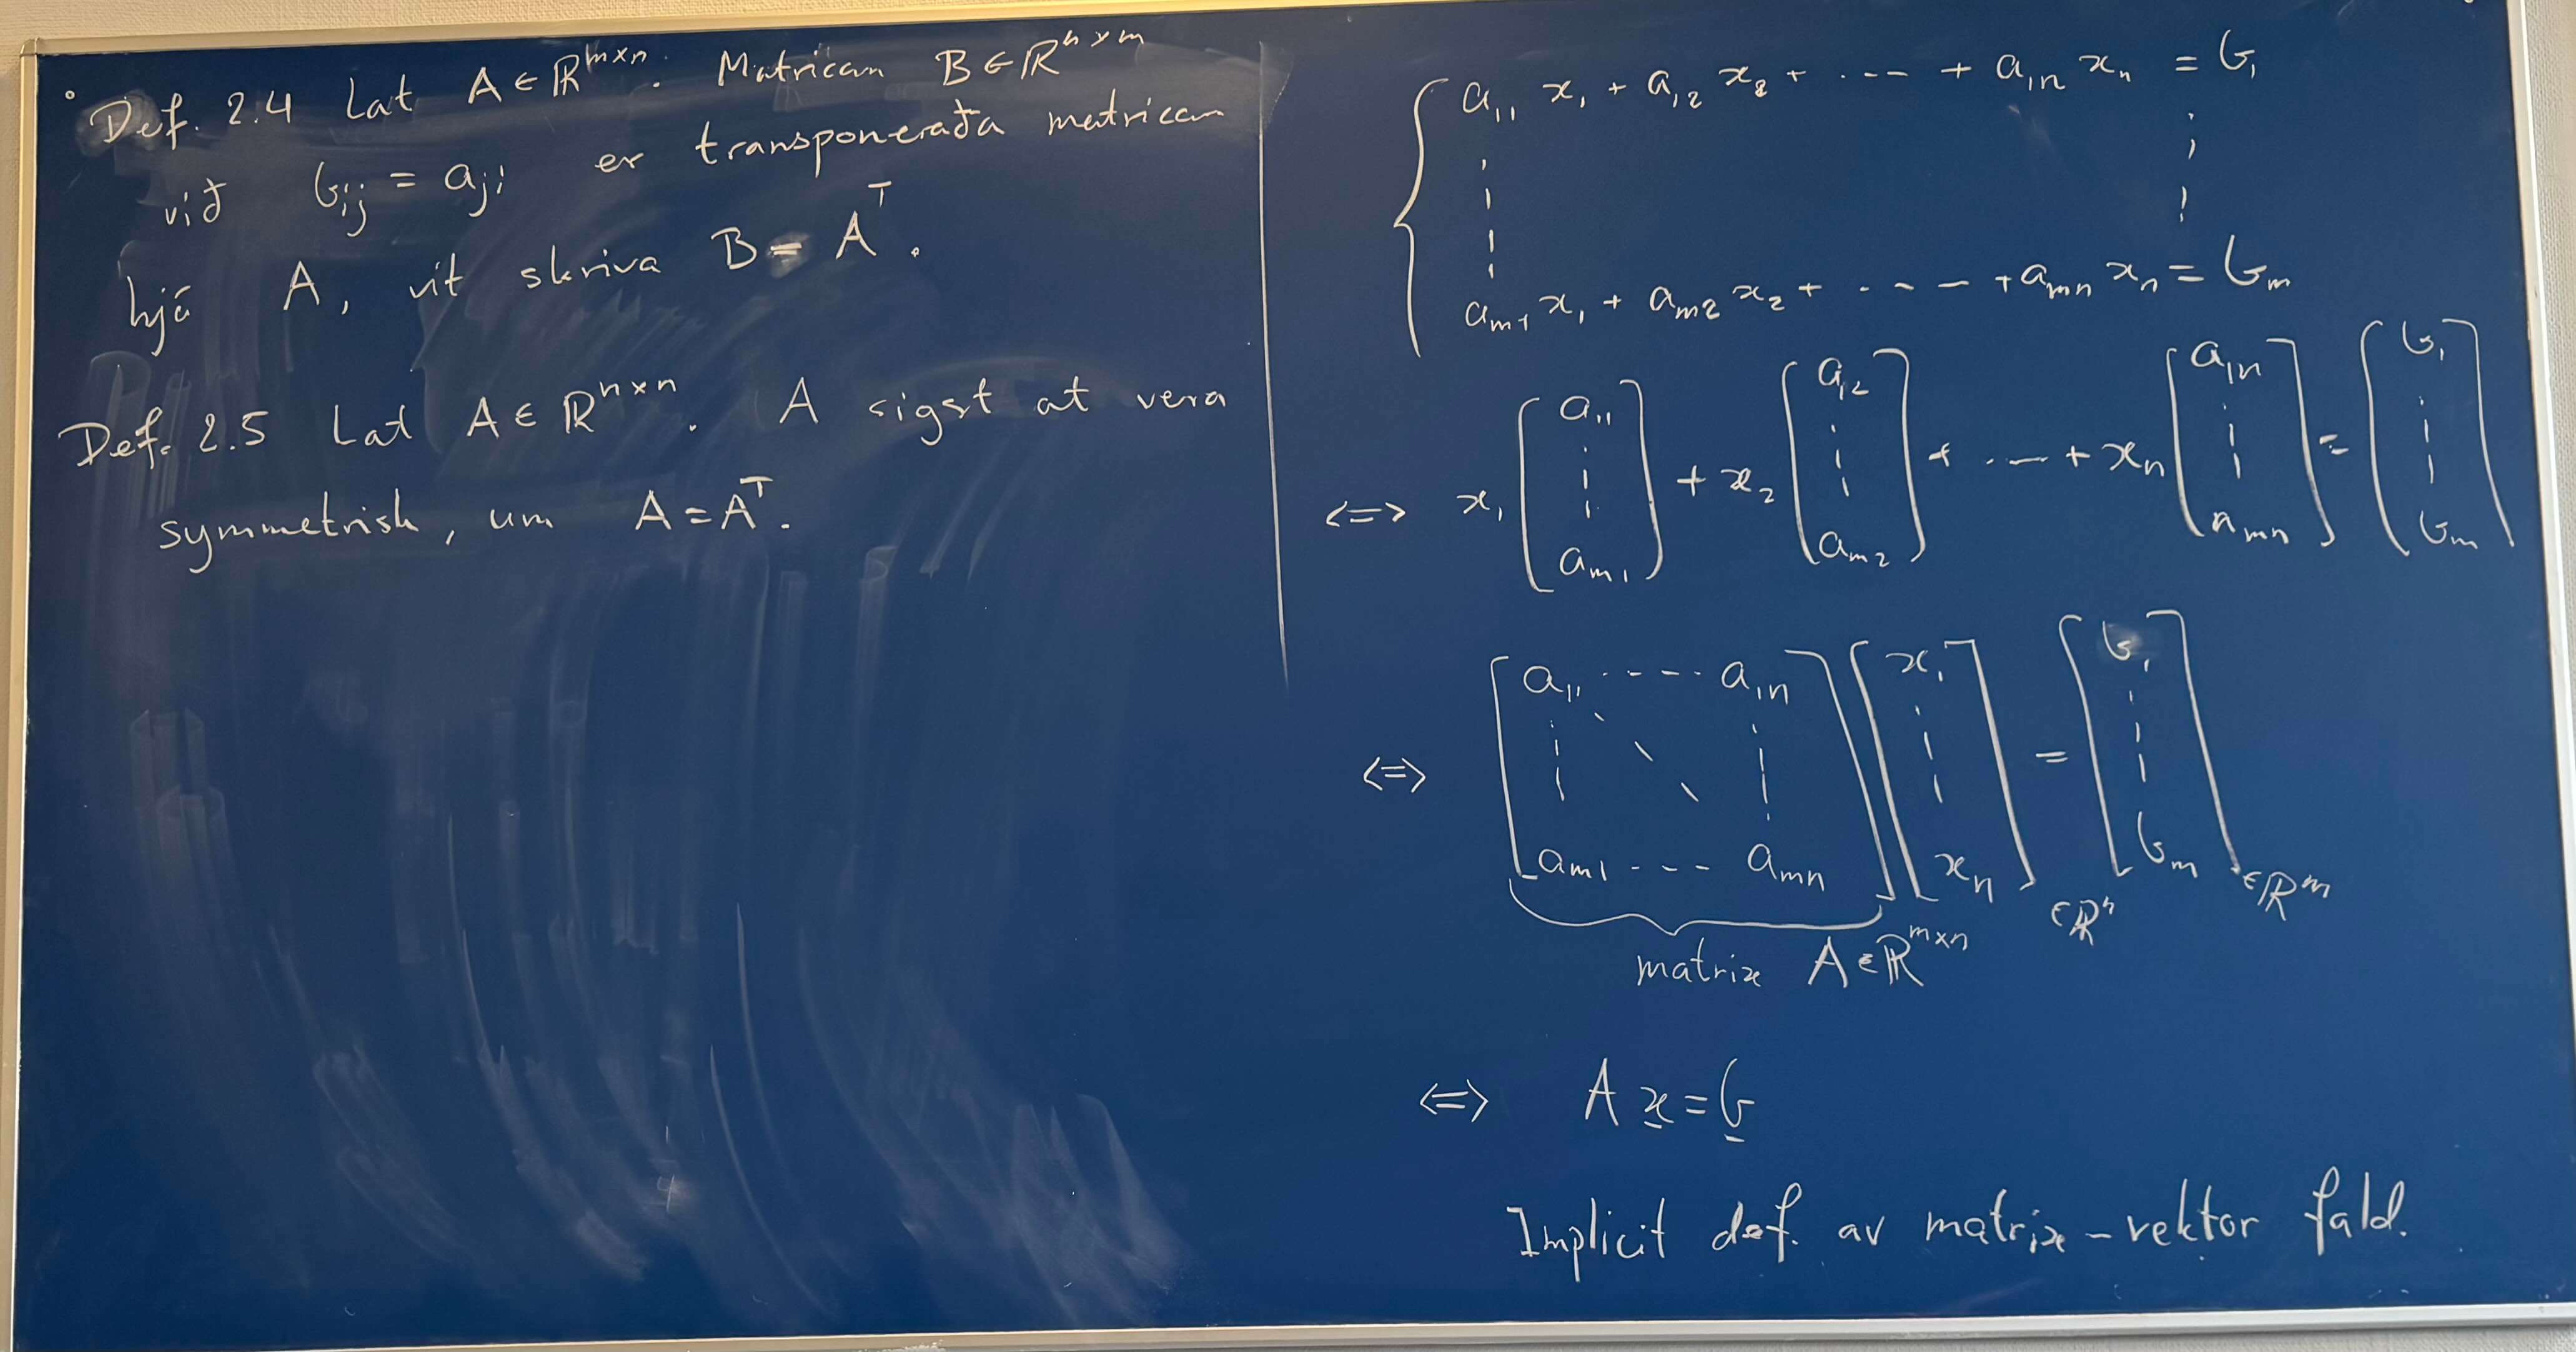 Def. 2.4 Lat A ∈ ℝ^{m×n}. Matrican B ∈ ℝ^{n×m}
við b_{ij} = a_{ji} er transponeraða matrican
hjá A, vit skriva B = A^T.
Def. 2.5 Lat A ∈ ℝ^{n×n}. A sigst at vera
symmetrisk, um A = A^T.
{ a_{11} x_1 + a_{12} x_2 + ---- + a_{1n} x_n = b_1
⋮ ⋮
a_{m1} x_1 + a_{m2} x_2 + ---- + a_{mn} x_n = b_m
<=> x_1 [a_{11} ⋮ a_{m1}] + x_2 [a_{12} ⋮ a_{m2}] + ---- + x_n [a_{1n} ⋮ a_{mn}] = [b_1 ⋮ b_m]
<=> [a_{11} ---- a_{1n} ⋮ ⋱ ⋮ a_{m1} --- a_{mn}] [x_1 ⋮ x_n] ∈ ℝ^n = [b_1 ⋮ b_m] ∈ ℝ^m
matrix A ∈ ℝ^{m×n}
<=> A x̲ = b̲
Implicit def. av matrix-vektor fald.